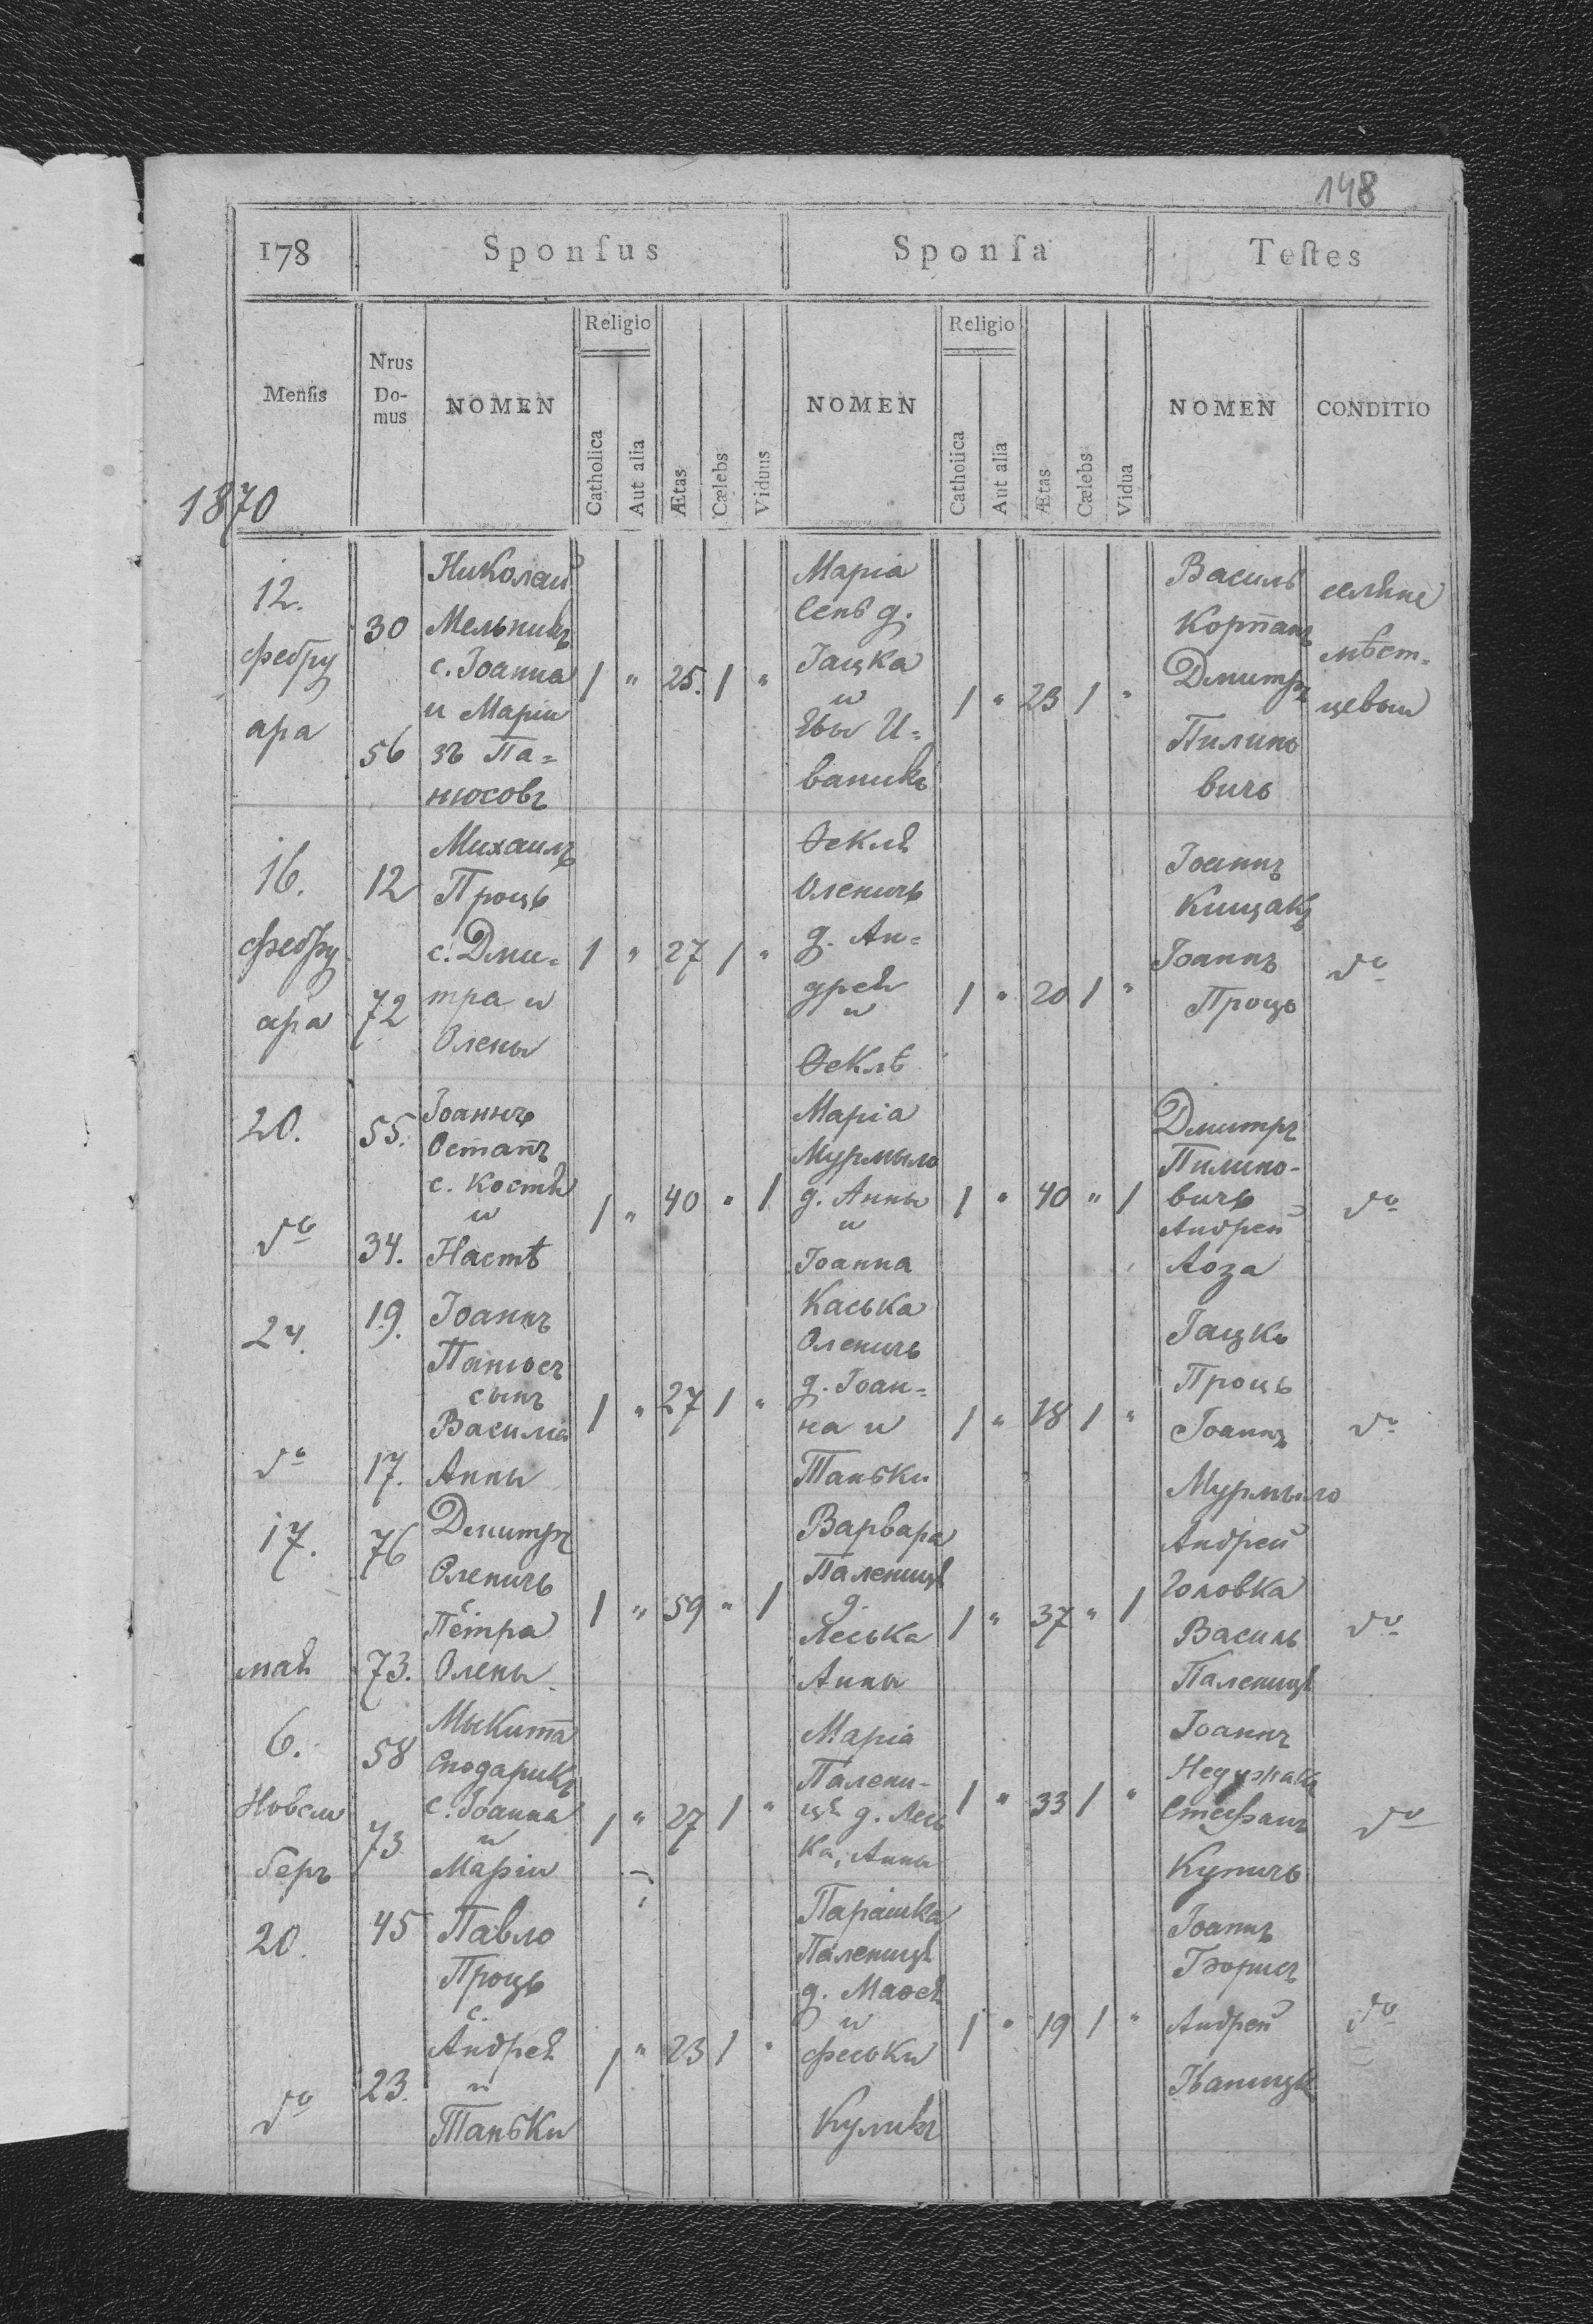 148
178 Sponsus Sponsa Testes
Mensis Nrus Domus NOMEN Religio Catholica Aut alia Ætas Cælebs Viduus NOMEN Religio Catholica Aut alia Ætas Cælebs Vidua NOMEN CONDITIO
1870
12.
фебру
ара
30
56
Николай
Мельникъ
с. Іоанна
и Маріи
зъ Па=
нюсовъ
1 " 25. 1 "
Маріа
Сень д.
Гацка
и
Евы И=
ваникъ
1 " 23 1 "
Василь
Корпанъ
Дмитръ
Пилипо
вичь
селяне
мѣст=
цевыи
16.
фебру
ара
12
72
Михаилъ
Проць
с. Дми=
тра и
Олены
1 " 27 1 "
Ѳекля
Оленичь
д. Ан=
дрея
и
Ѳеклѣ
1 " 20 1 "
Іоаннъ
Кищакъ
Іоаннъ
Проць
dº
20.
dº
55.
34.
Іоаннъ
Остапъ
с. Костя
и
Настѣ
1 " 40 " 1
Маріа
Мурмыло
д. Анны
и
Іоанна
1 " 40 " 1
Дмитръ
Пилипо-
вичь
Андрей
Лоза
dº
24.
dº
19.
17.
Іоаннъ
Панюсъ
сынъ
Василія
Анны
1 " 27 1 "
Каська
Оленичь
д. Іоан=
на и
Таньки
1 " 18 1 "
Гацко
Проць
Іоаннъ
Мурмыло
dº
17.
мая
76
73.
Дмитръ
Оленичь
с.
Петра
Олены
1 " 59 " 1
Варвара
Паленица
д.
Леська
Анны
1 " 37 " 1
Андрей
Головка
Василь
Паленица
dº
6.
Новем
беръ
58
73
Мыкита
Сподарикъ
с. Іоанна
и
Маріи
1 " 27 1 "
Маріа
Палени-
ця д. Лесь
ка, Анны
1 " 33 1 "
Іоаннъ
Недужакъ
Стефанъ
Куничь
dº
20.
dº
45
23.
Павло
Проць
с.
Андрея
и
Таньки
1 " 23 1 "
Парашка
Паленица
д. Маѳея
и
феськи
Куликъ
1 " 19 1 "
Іоаннъ
Андрей
dº